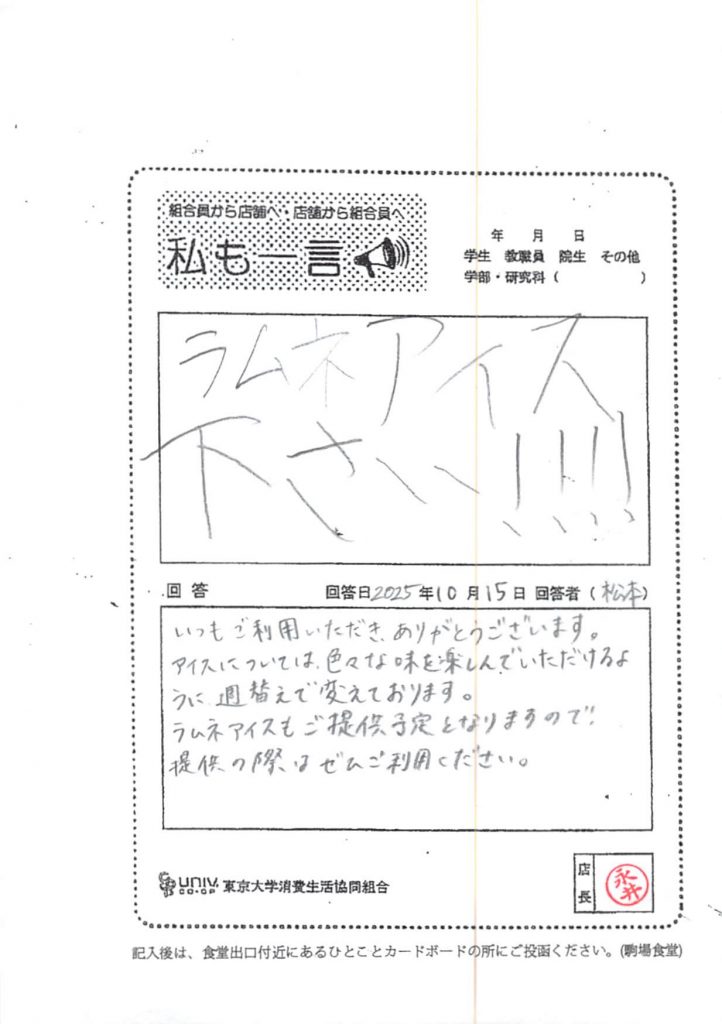 組合員から店舗へ・店舗から組合員へ
私も一言
年 月 日
学生 教職員 院生 その他
学部・研究科 ( )
ラムネアイス
下さい!!!!
回答 回答日2025年10月15日 回答者 (松本)
いつもご利用いただき、ありがとうございます。
アイスについては、色々な味を楽しんでいただけるよ
うに、週替えで変えております。
ラムネアイスもご提供予定となりますので、
提供の際はぜひご利用ください。
UNIV.
CO-OP
東京大学消費生活協同組合
店長
永井
記入後は、食堂出口付近にあるひとことカードボードの所にご投函ください。(駒場食堂)